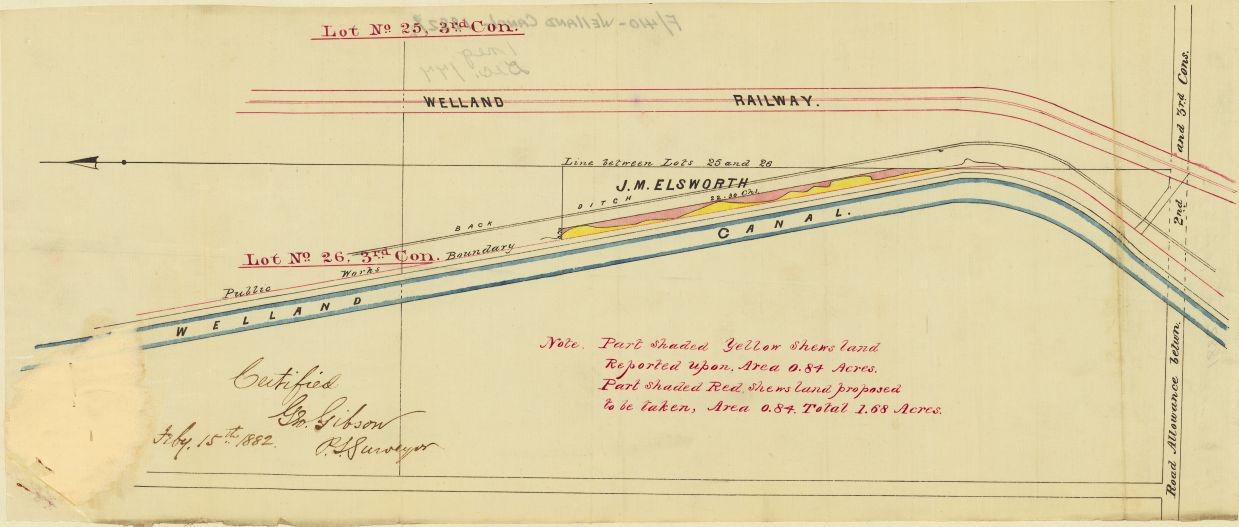 Lot No. 25, 3rd Con.
WELLAND RAILWAY.
Line between Lots 25 and 26
J. M. ELSWORTH
BACK DITCH
Lot No. 26, 3rd Con.
Public Works Boundary
WELLAND CANAL.
Note. Part shaded Yellow shews land
Reported upon. Area 0.84 Acres.
Part shaded Red, shews land proposed
to be taken, Area 0.84. Total 1.68 Acres.
Certified
Geo. Gibson
P. L. Surveyor
Feby. 15th 1882.
Road Allowance betwn. 2nd and 3rd Cons.